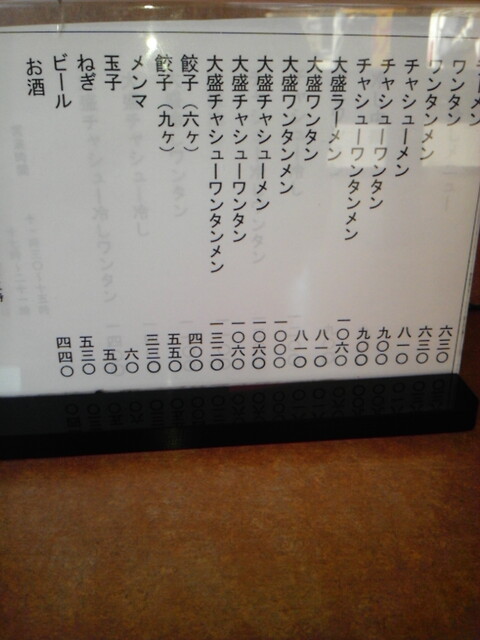 ラーメン 六三〇
ワンタン 六三〇
ワンタンメン 八一〇
チャシューメン 九〇〇
チャシューワンタン 九〇〇
チャシューワンタンメン 一〇六〇
大盛ラーメン 八一〇
大盛ワンタン 八一〇
大盛ワンタンメン 一〇〇〇
大盛チャシューメン 一〇六〇
大盛チャシューワンタン 一〇六〇
大盛チャシューワンタンメン 一三二〇
餃子（六ヶ） 四〇〇
餃子（九ヶ） 五五〇
メンマ 三三〇
玉子 六〇
ねぎ 五〇
ビール 五三〇
お酒 四四〇